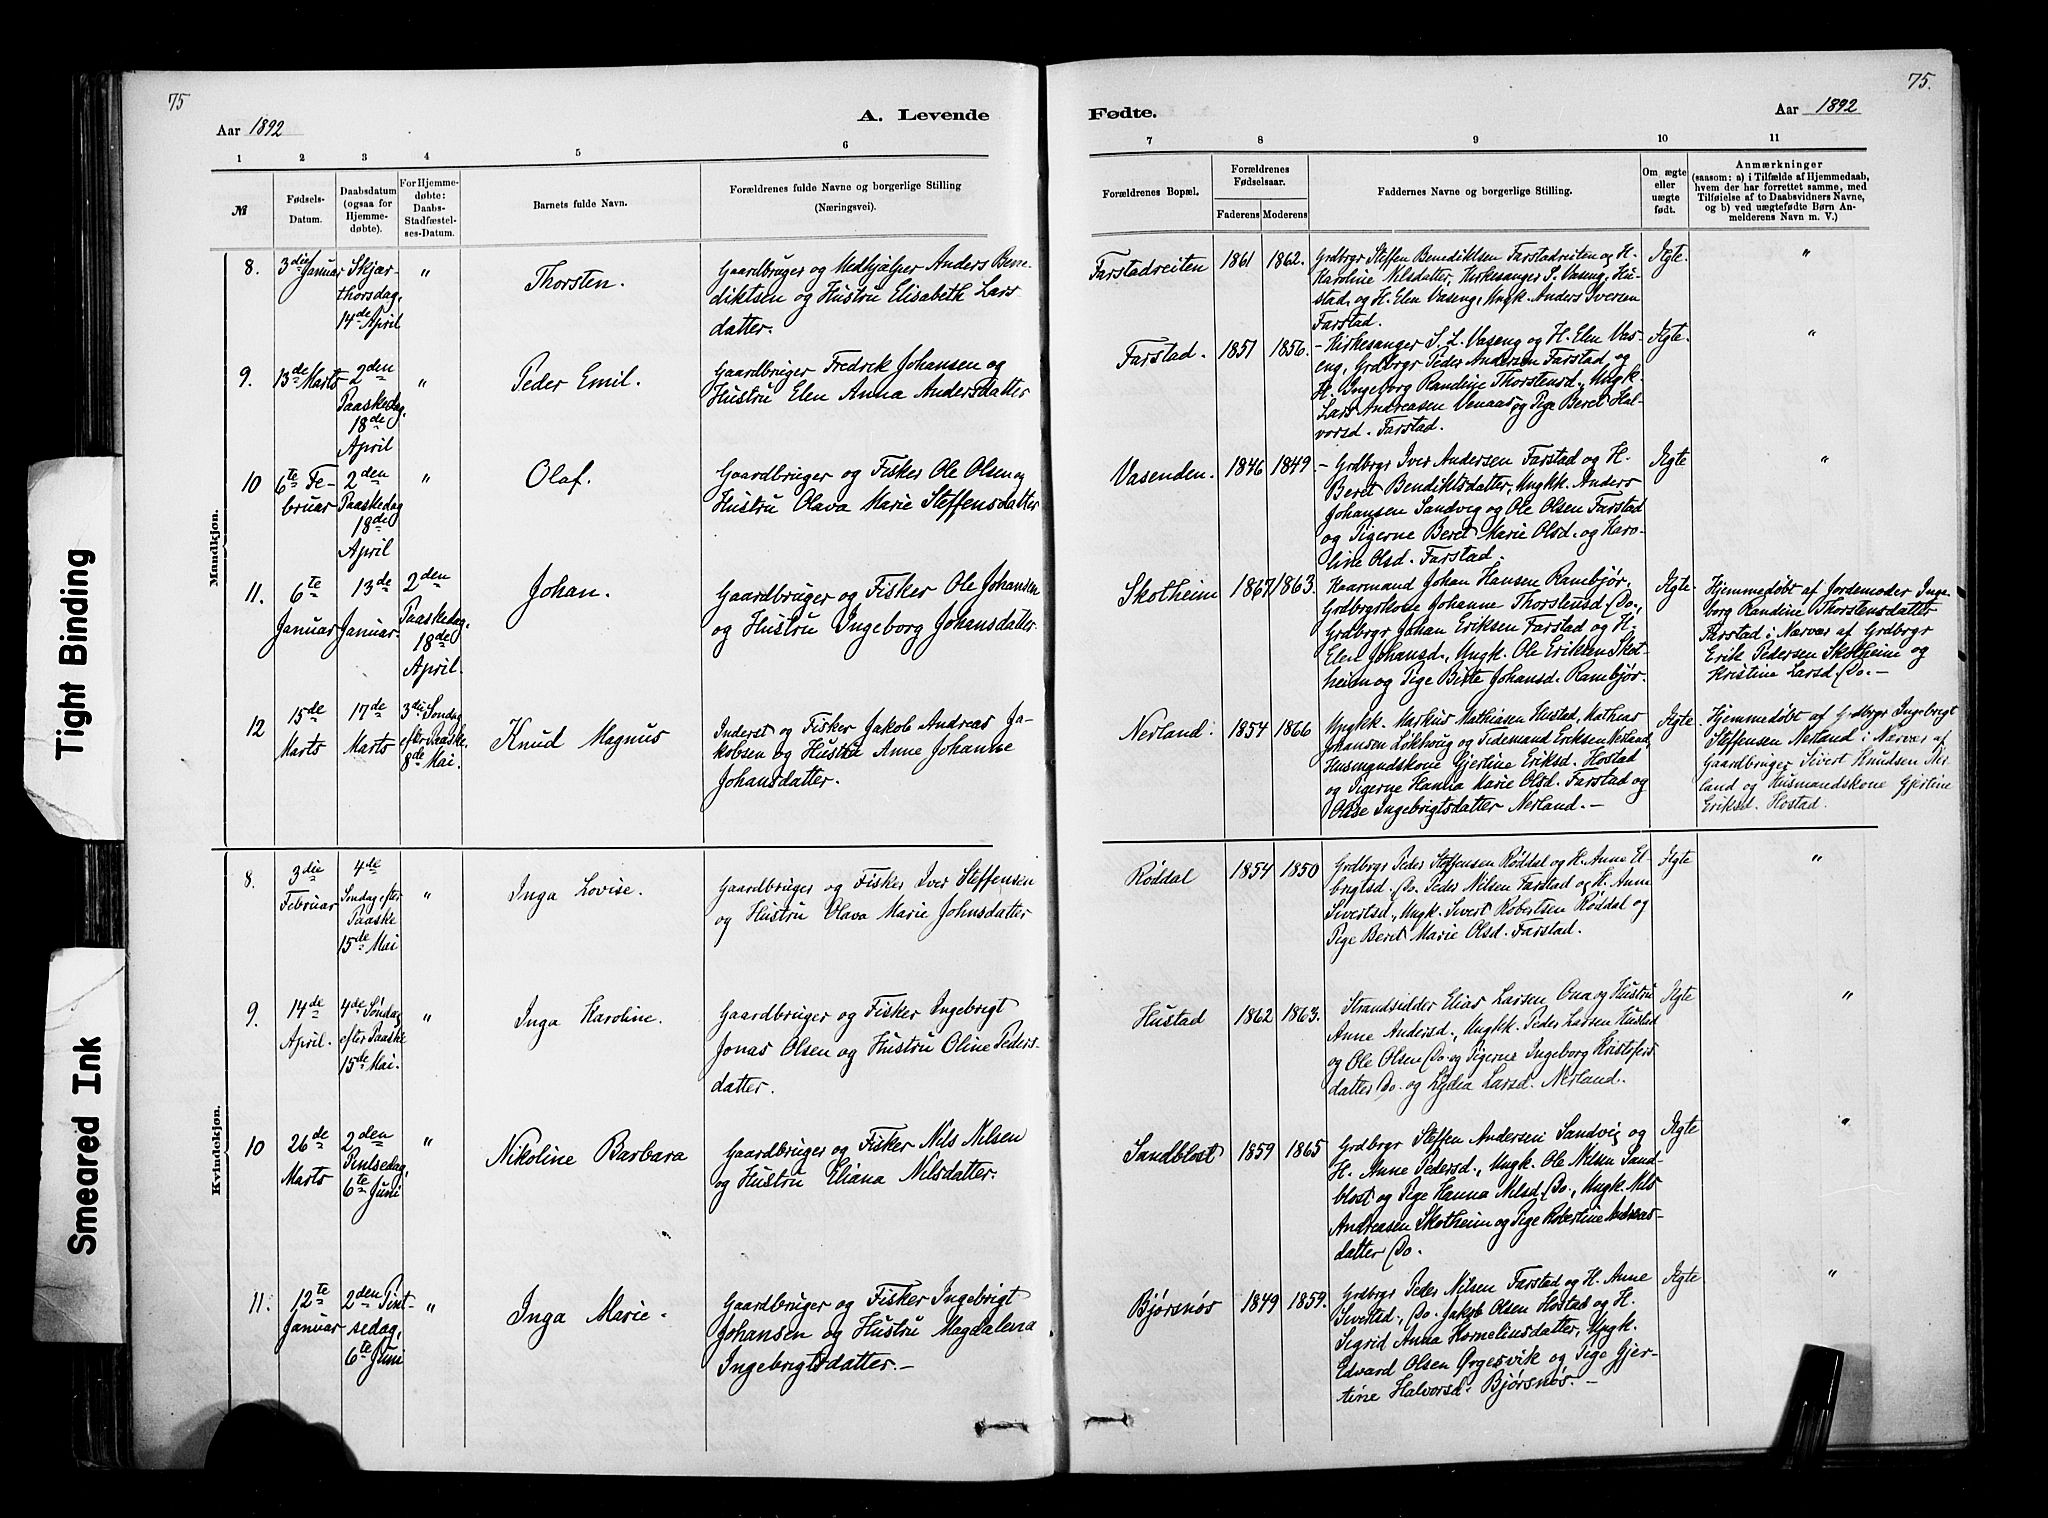 75
75.
A. Levende
Fødte.
Aar 1892
Aar 1892
1 2 3 4 5 6
7 8 9 10 11
№
Fødsels-
Datum.
Daabsdatum
(ogsaa for
Hjemme-
døbte).
For Hjemme-
døbte:
Daabs-
Stadfæstel-
ses-Datum.
Barnets fulde Navn.
Forældrenes fulde Navne og borgerlige Stilling
(Næringsvei).
Forældrenes Bopæl.
Forældrenes
Fødselsaar.
Faderens Moderens
Faddernes Navne og borgerlige Stilling.
Om ægte
eller
uægte
født.
Anmærkninger
(saasom: a) i Tilfælde af Hjemmedaab,
hvem der har forrettet samme, med
Tilføielse af to Daabsvidners Navne,
og b) ved uægtefødte Børn An-
melderens Navn m. V.)
Mandkjøn.
8.
3die Januar
Skjær-
thorsdag,
14de April
"
Thorsten.
Gaardbruger og Medhjælper Anders Bene-
diktsen og Hustru Elisabeth Lars-
datter.
Farstadreiten
1861
1862.
Grdbrgr Steffen Bendiktsen Farstadreiten og H.
Karoline Nilsdatter, Kirkesanger S. Vaseng, Hu-
stad, og H. Elen Vaseng, Ungk. Anders Iversen
Farstad.
Ægte.
"
9.
13de Marts
2den
Paaskedag,
18de
April
"
Peder Emil.
Gaardbruger Fredrik Johansen og
Hustru Elen Anna Andersdatter
Farstad.
1851
1856.
- Kirkesanger S. L. Vaseng og H. Elen Vas-
eng, Grdbrgr Peder Andersen Farstad og
H. Ingeborg Randine Thorstensd., Ungk.
Lars Andreasen Venaas og Pige Beret Hal-
vorsd. Farstad.
Ægte.
"
10
6te Fe-
bruar
2den
Paaskedag
18de
April
"
Olaf.
Gaardbruger og Fisker Ole Olsen og
Hustru Olava Marie Steffensdatter
Vasenden.
1846
1849.
- Grdbrgr Iver Andersen Farstad og H.
Beret Bendiktsdatter, Ungkk. Anders
Johansen Sandvig og Ole Olsen Farstad
og Pigerne Beret Marie Olsd. og Karo-
line Olsd. Farstad.
Ægte
"
11.
6te
Januar
13de
Januar.
2den
Paaskedag,
18de
April.
Johan.
Gaardbruger og Fisker Ole Johansen
og Hustru Ingeborg Johansdatter.
Skotheim
1867
1863.
Kaarmand Johan Hansen Rambjør,
Grdbrgrkone Johanne Thorstensd. Do.,
Grdbrgr Johan Eriksen Farstad og H.
Elen Johansd., Ungk. Ole Eriksen Skot-
heim og Pige Berte Johansd. Rambjør.
Ægte
Hjemmedøbt af Jordemoder Inge-
borg Randine Thorstensdatter
Farstad i Nærvær af Grdbrgr
Erik Pedersen Skotheim og
Kristine Larsd. Do. -
12
15de
Marts
17de
Marts
3die Søndag
efter Paaske
8de Mai.
Knud Magnus
Inderst og Fisker Jakob Andreas Ja-
kobsen og Hustru Anne Johanne
Johansdatter.
Nerland.
1854
1866
Ungkk. Markus Mathiasen Hustad, Mathias
Johansen og Tidemand Eriksen Nerland,
Husmandskone Gjertine Eriksd. Hostad
og Pigerne Hanna Marie Olsd. Farstad og
Ingebrigtsdatter Nerland. -
Ægte
Hjemmedøbt af Grdbrgr Ingebrigt
Steffensen Nerland i Nærvær af
Gaardbruger Sivert Knudsen Ner-
land og Husmandskone Gjertine
Eriksd. Hostad.
Kvindekjøn.
8.
3die
Februar
4de
Søndag efter
Paaske
15de Mai
"
Inga Lovise.
Gaardbruger og Fisker Iver Steffensen
og Hustru Olava Marie Johnsdatter
Røddal
1854
1850
Grdbrgr Peder Steffensen Røddal og H. Anne El-
brigtsd. Do. Peder Nilsen Farstad og H. Anne
Sivertsd., Ungk. Sivert Robertsen Røddal og
Pige Beret Marie Olsd. Farstad.
Ægte
"
9.
14de
April.
4de Søndag
efter Paaske
15de Mai.
"
Inga Karoline.
Gaardbruger og Fisker Ingebrigt
Jonas Olsen og Hustru Oline Peders-
datter.
Hustad
1862
1863.
Strandsidder Elias Larsen Ona og Hustru
Anne Andersd., Ungk. Peder Larsen Hustad
og Ole Olsen Do. og Pigerne Ingeborg Kristofers-
datter Do. og Lydia Larsd. Nerland.
Ægte
"
10
26de
Marts
2den
Pintsedag,
6te Juni
"
Nikoline Barbara
Gaardbruger og Fisker Nils Nilsen
og Hustru Eliana Nilsdatter.
Sandblost
1859
1865
Grdbrgr Steffen Andersen Sandvig og
H. Anne Pedersd., Ungk. Ole Nilsen Sand-
blost og Pige Hanna Nilsd. Do., Ungk. Nils
Andreasen Skotheim og Pige Robertine Andreas-
datter Do.
Ægte
"
11.
12te
Januar
2den Pint-
sedag,
6te Juni
"
Inga Marie.
Gaardbruger og Fisker Ingebrigt
Johansen og Hustru Magdalena
Ingebrigtsdatter. -
Bjørsnøs
1849
1859.
Grdbrgr Peder Nilsen Farstad og H. Anne
Sivertsd., Do. Jakob Olsen Hostad og H.
Sigrid Anna Korneliusdatter, Ungk.
Edvard Olsen Ørgesvik og Pige Gjer-
tine Halvorsd. Bjørsnøs. -
Ægte
"
Tight Binding
Smeared Ink